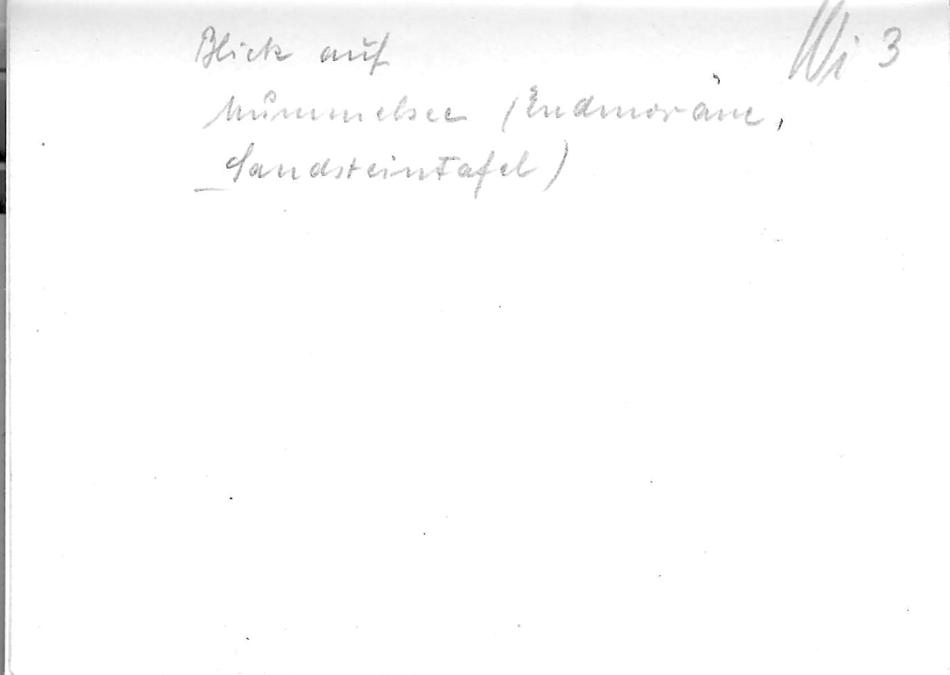 Blick auf
Wi 3
Mummelsee (Endmoräne,
Sandsteintafel)